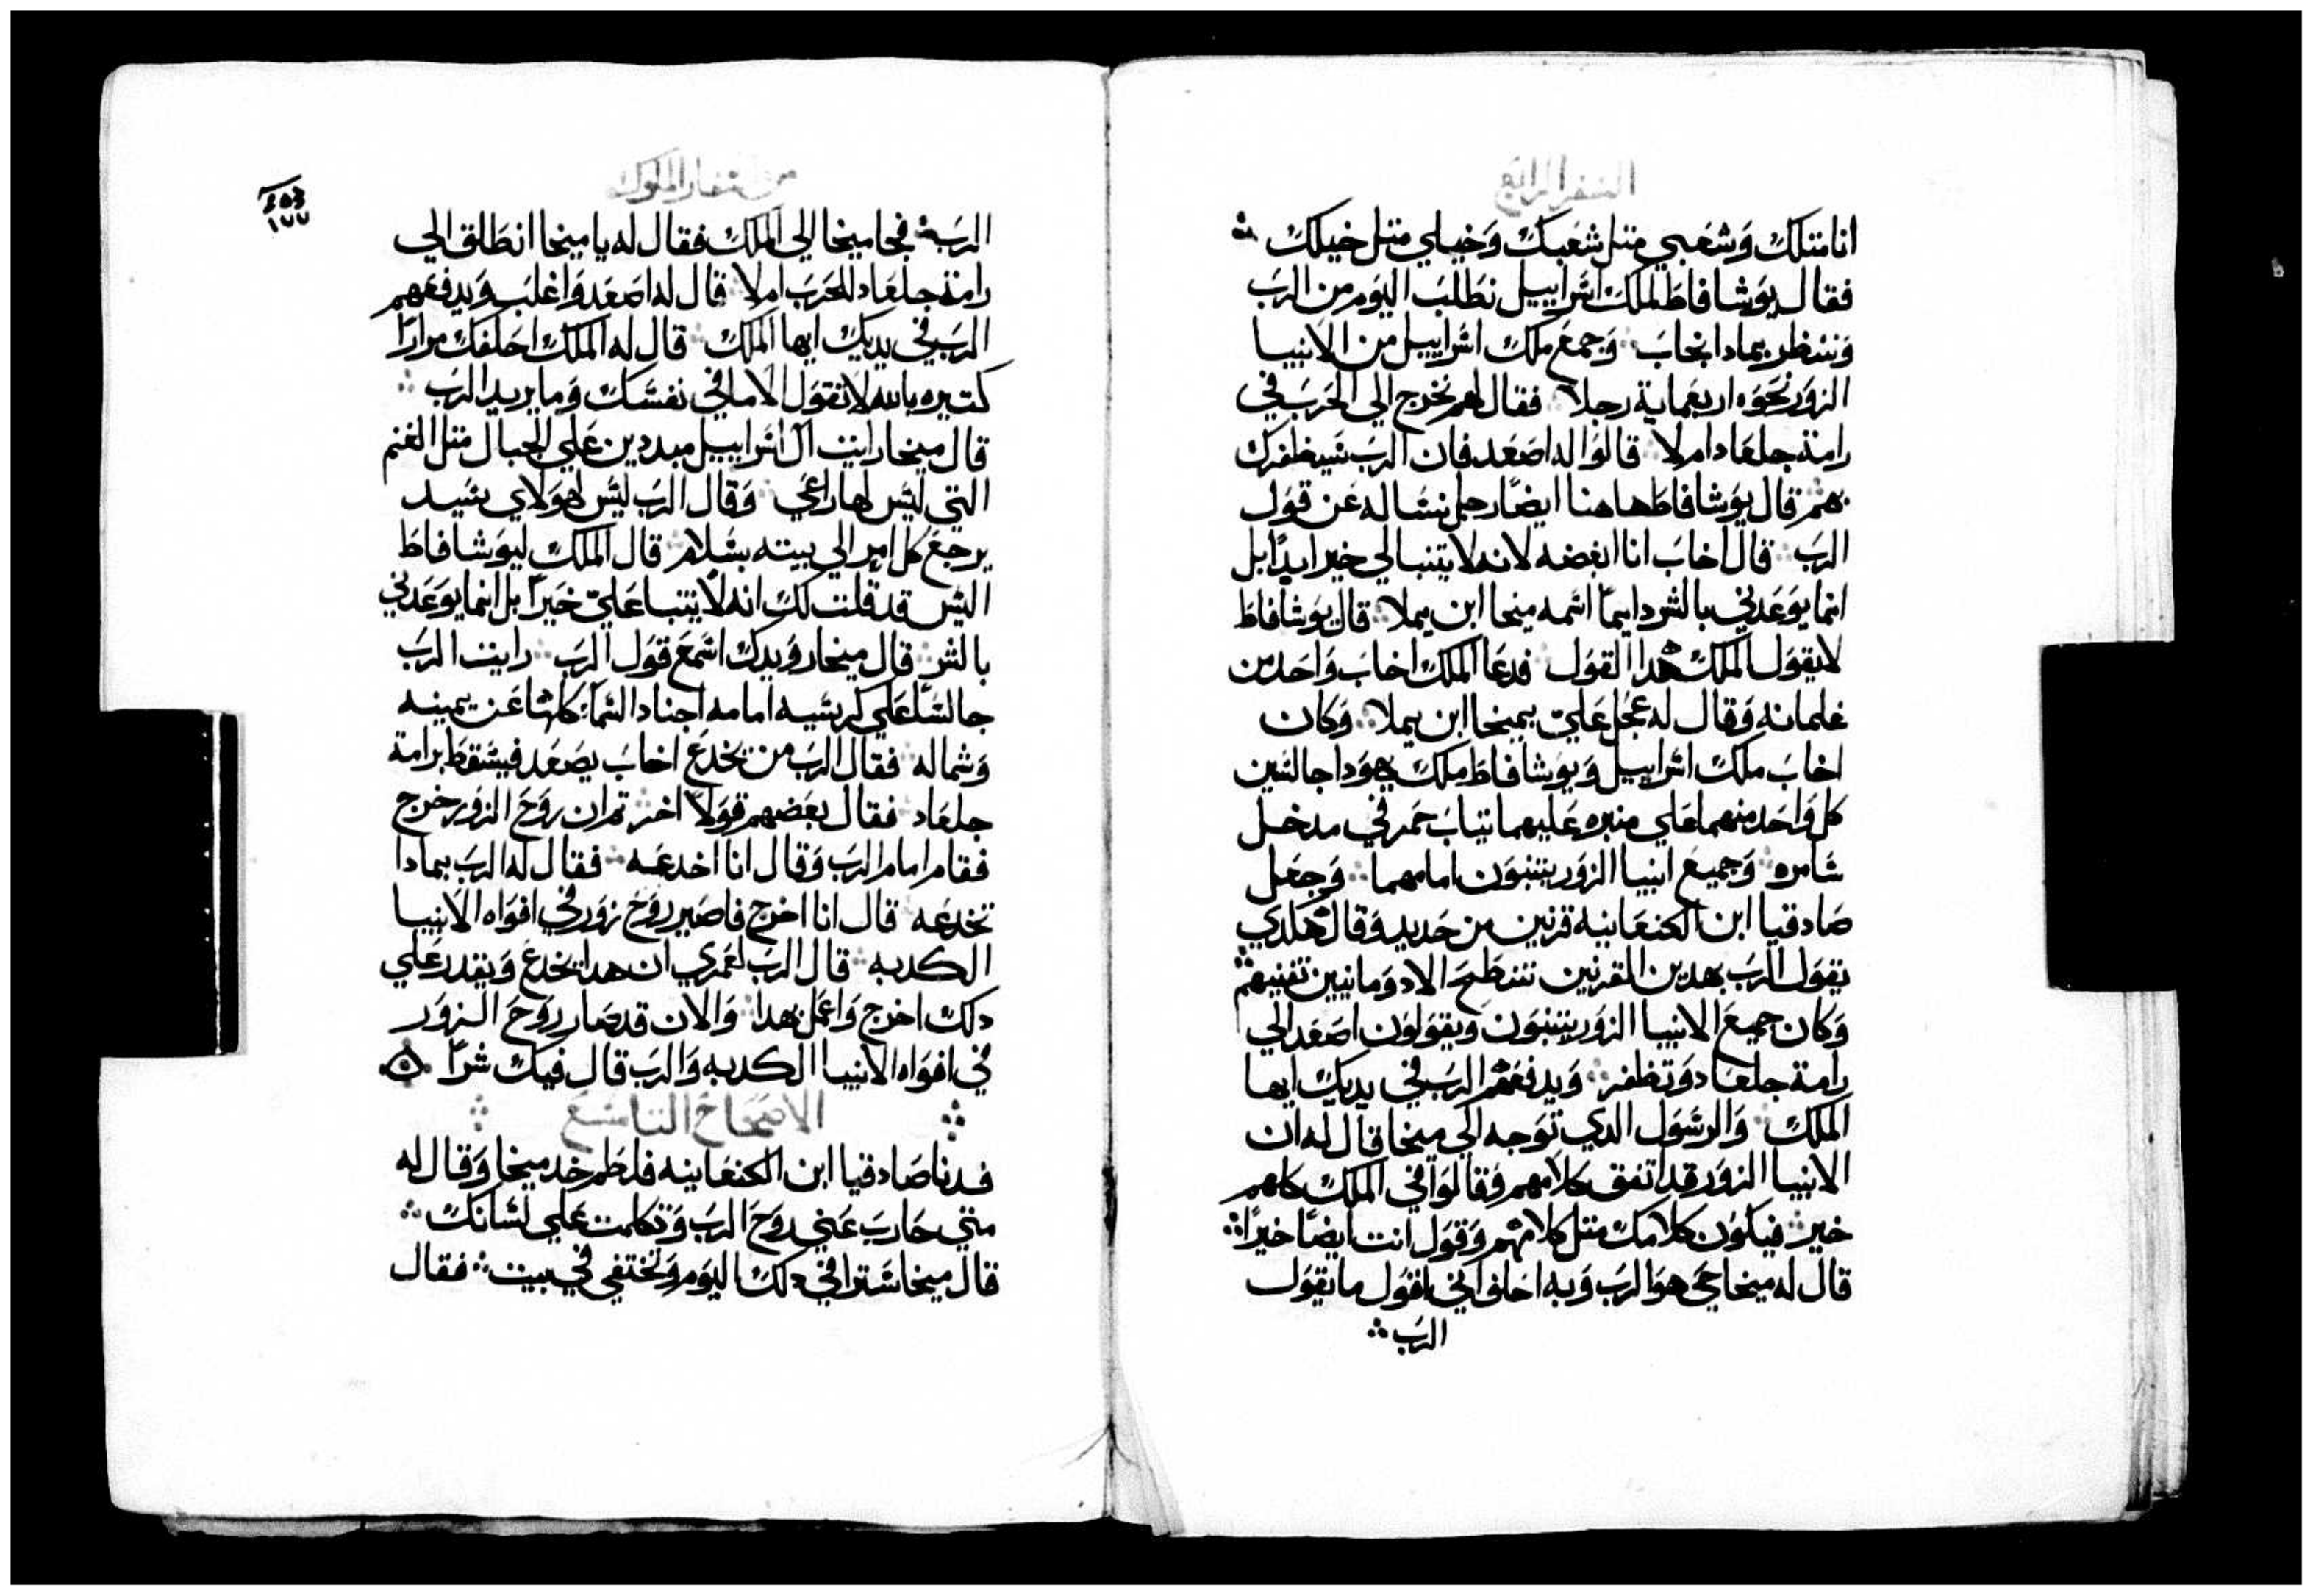 السفر الرابع
انا متلك وشعبي متل شعبك وخيلي متل خيلك
فقال يوشافاط لملك اسراييل نطلب اليوم من الرب
وننظر بمادا نجاب وجمع ملك اسراييل من الانبيا
الزور نحوه اربعماية رجلا فقال لهم نخرج الي الحرب في
رامة جلعاد ام لا قالوا له اصعد فان الرب سيظفرك
بهم قال يوشافاط هاهنا ايضا رجل نساله عن قول
الرب قال اخاب انا ابغضه لانه لا يتنبا لي خير ابدا بل
انما يوعدني بالشر دايما اسمه ميخا ابن يملا قال يوشافاط
لا يقول الملك هدا القول فدعا الملك اخاب واحد من
غلمانه وقال له عجل علي بميخا ابن يملا وكان
اخاب ملك اسراييل ويوشافاط ملك يهودا جالسين
كل واحد منهما علي منبره عليهما تياب حمر في مدخل
سامره وجميع انبيا الزور يتنبون امامهما وجعل
صادقيا ابن الكنعانيه قرنين من حديد وقال هكدي
يقول الرب بهدين القرنين تنطح الادومانيين تفنيهم
وكان جميع الانبيا الزور يتنبون ويقولون اصعد الي
رامة جلعاد وتظفر ويدفعهم الرب في يديك ايها
الملك والرسول الدي توجه الي ميخا قال له ان
الانبيا الزور قد اتفق كلامهم وقالوا في الملك كلهم
خير فيكون كلامك متل كلامهم وقول انت ايضا خيرا
قال له ميخا حي هو الرب وبه احلف اني اقول ما يقول
الرب
من اسفار الملوك
٤٥٣
١٧٧
الرب فجا ميخا الي الملك فقال له يا ميخا انطلق الي
رامة جلعاد للحرب ام لا قال له اصعد واغلب ويدفعهم
الرب في يديك ايها الملك قال له الملك احلفك مرارا
كتيره بالله لا تقول الا ما في نفسك وما يريد الرب
قال ميخا رايت ال اسراييل مبددين علي الجبال متل الغنم
التي ليس لها راعي وقال الرب ليس لهولاي سيد
يرجع كل امر الي بيته بسلام قال الملك ليوشافاط
اليس قد قلت لك انه لا يتنبا علي خيرا بل انما يوعدني
بالشر قال ميخا رويدك اسمع قول الرب رايت الرب
جالسا علي كرسيه امامه اجناد السما كلها عن يمينه
وشماله فقال الرب من يخدع اخاب يصعد فيسقط برامة
جلعاد فقال بعضهم قولا اخر تم ان روح الزور خرج
فقام امام الرب وقال انا اخدعه فقال له الرب بمادا
تخدعه قال انا اخرج فاصير روح زور في افواه الانبيا
الكدبه قال الرب لعمري ان هدا يخدع ويقدر علي
دلك اخرج واعمل بهدا والان قد صار روح الزور
في افواه الانبيا الكدبه والرب قال فيك شرا
الاصحاح التاسع
فدنا صادقيا ابن الكنعانيه فلطم خد ميخا وقال له
متي حارب عني روح الرب وتكلمت علي لسانك
قال ميخا ستراني دلك اليوم وتختفي في بيت فقال